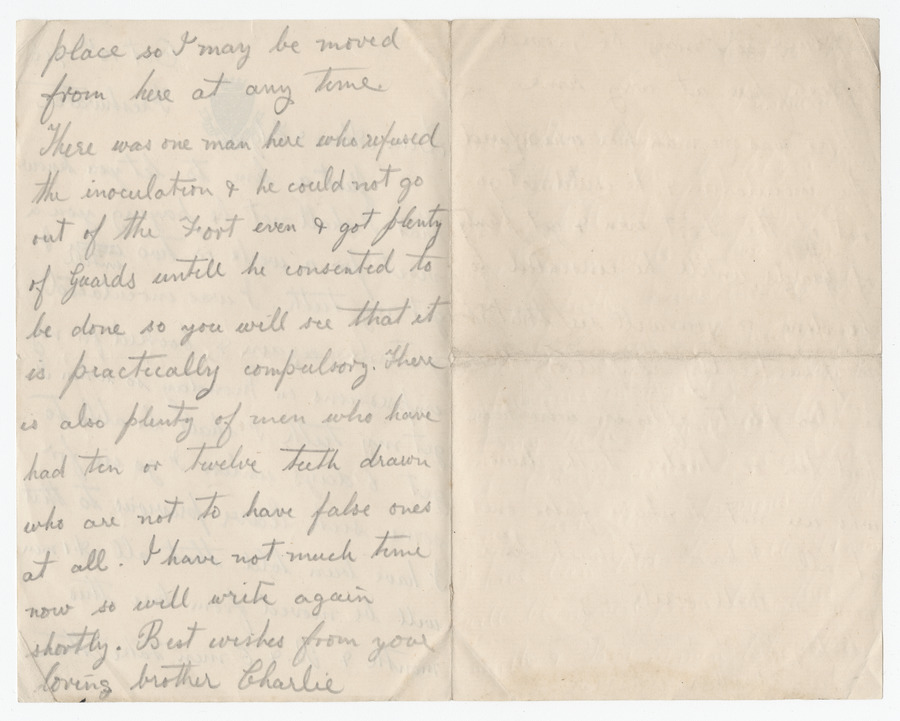 place so I may be moved
from here at any time.
There was one man here who refused
the inoculation & he could not go
out of the Fort even & got plenty
of Guards untill he consented to
be done so you will see that it
is practically compulsory. There
is also plenty of men who have
had ten or twelve teeth drawn
who are not to have false ones
at all. I have not much time
now so will write again
shortly. Best wishes from your
loving brother Charlie